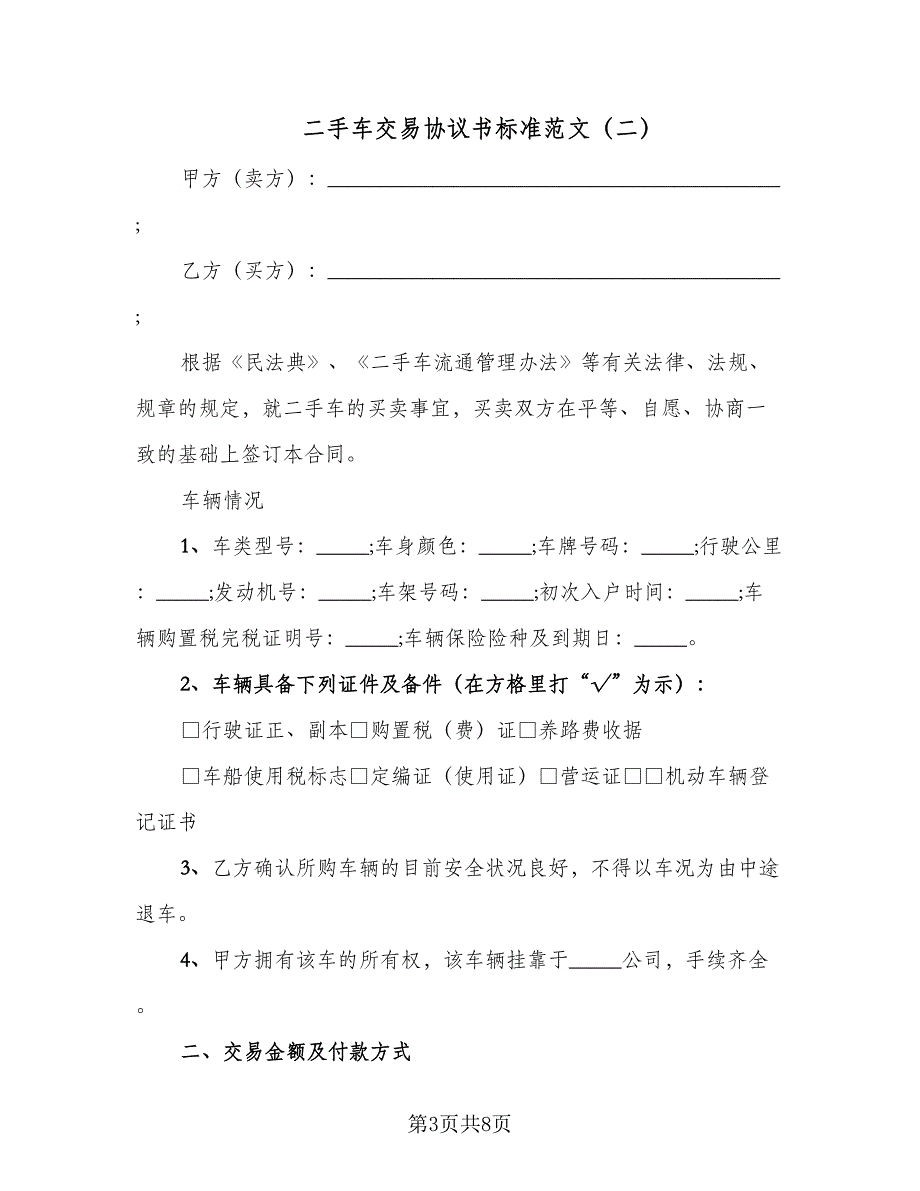 二手车交易协议书标准范文（二）
甲方（卖方）：___________________________________________
;
乙方（买方）：___________________________________________
;
根据《民法典》、《二手车流通管理办法》等有关法律、法规、
规章的规定，就二手车的买卖事宜，买卖双方在平等、自愿、协商一
致的基础上签订本合同。
车辆情况
1、车类型号：_____;车身颜色：_____;车牌号码：_____;行驶公里
：_____;发动机号：_____;车架号码：_____;初次入户时间：_____;车
辆购置税完税证明号：_____;车辆保险险种及到期日：_____。
2、车辆具备下列证件及备件（在方格里打“√”为示）：
□行驶证正、副本□购置税（费）证□养路费收据
□车船使用税标志□定编证（使用证）□营运证□□机动车辆登
记证书
3、乙方确认所购车辆的目前安全状况良好，不得以车况为由中途
退车。
4、甲方拥有该车的所有权，该车辆挂靠于_____公司，手续齐全
。
二、交易金额及付款方式
第3页共8页